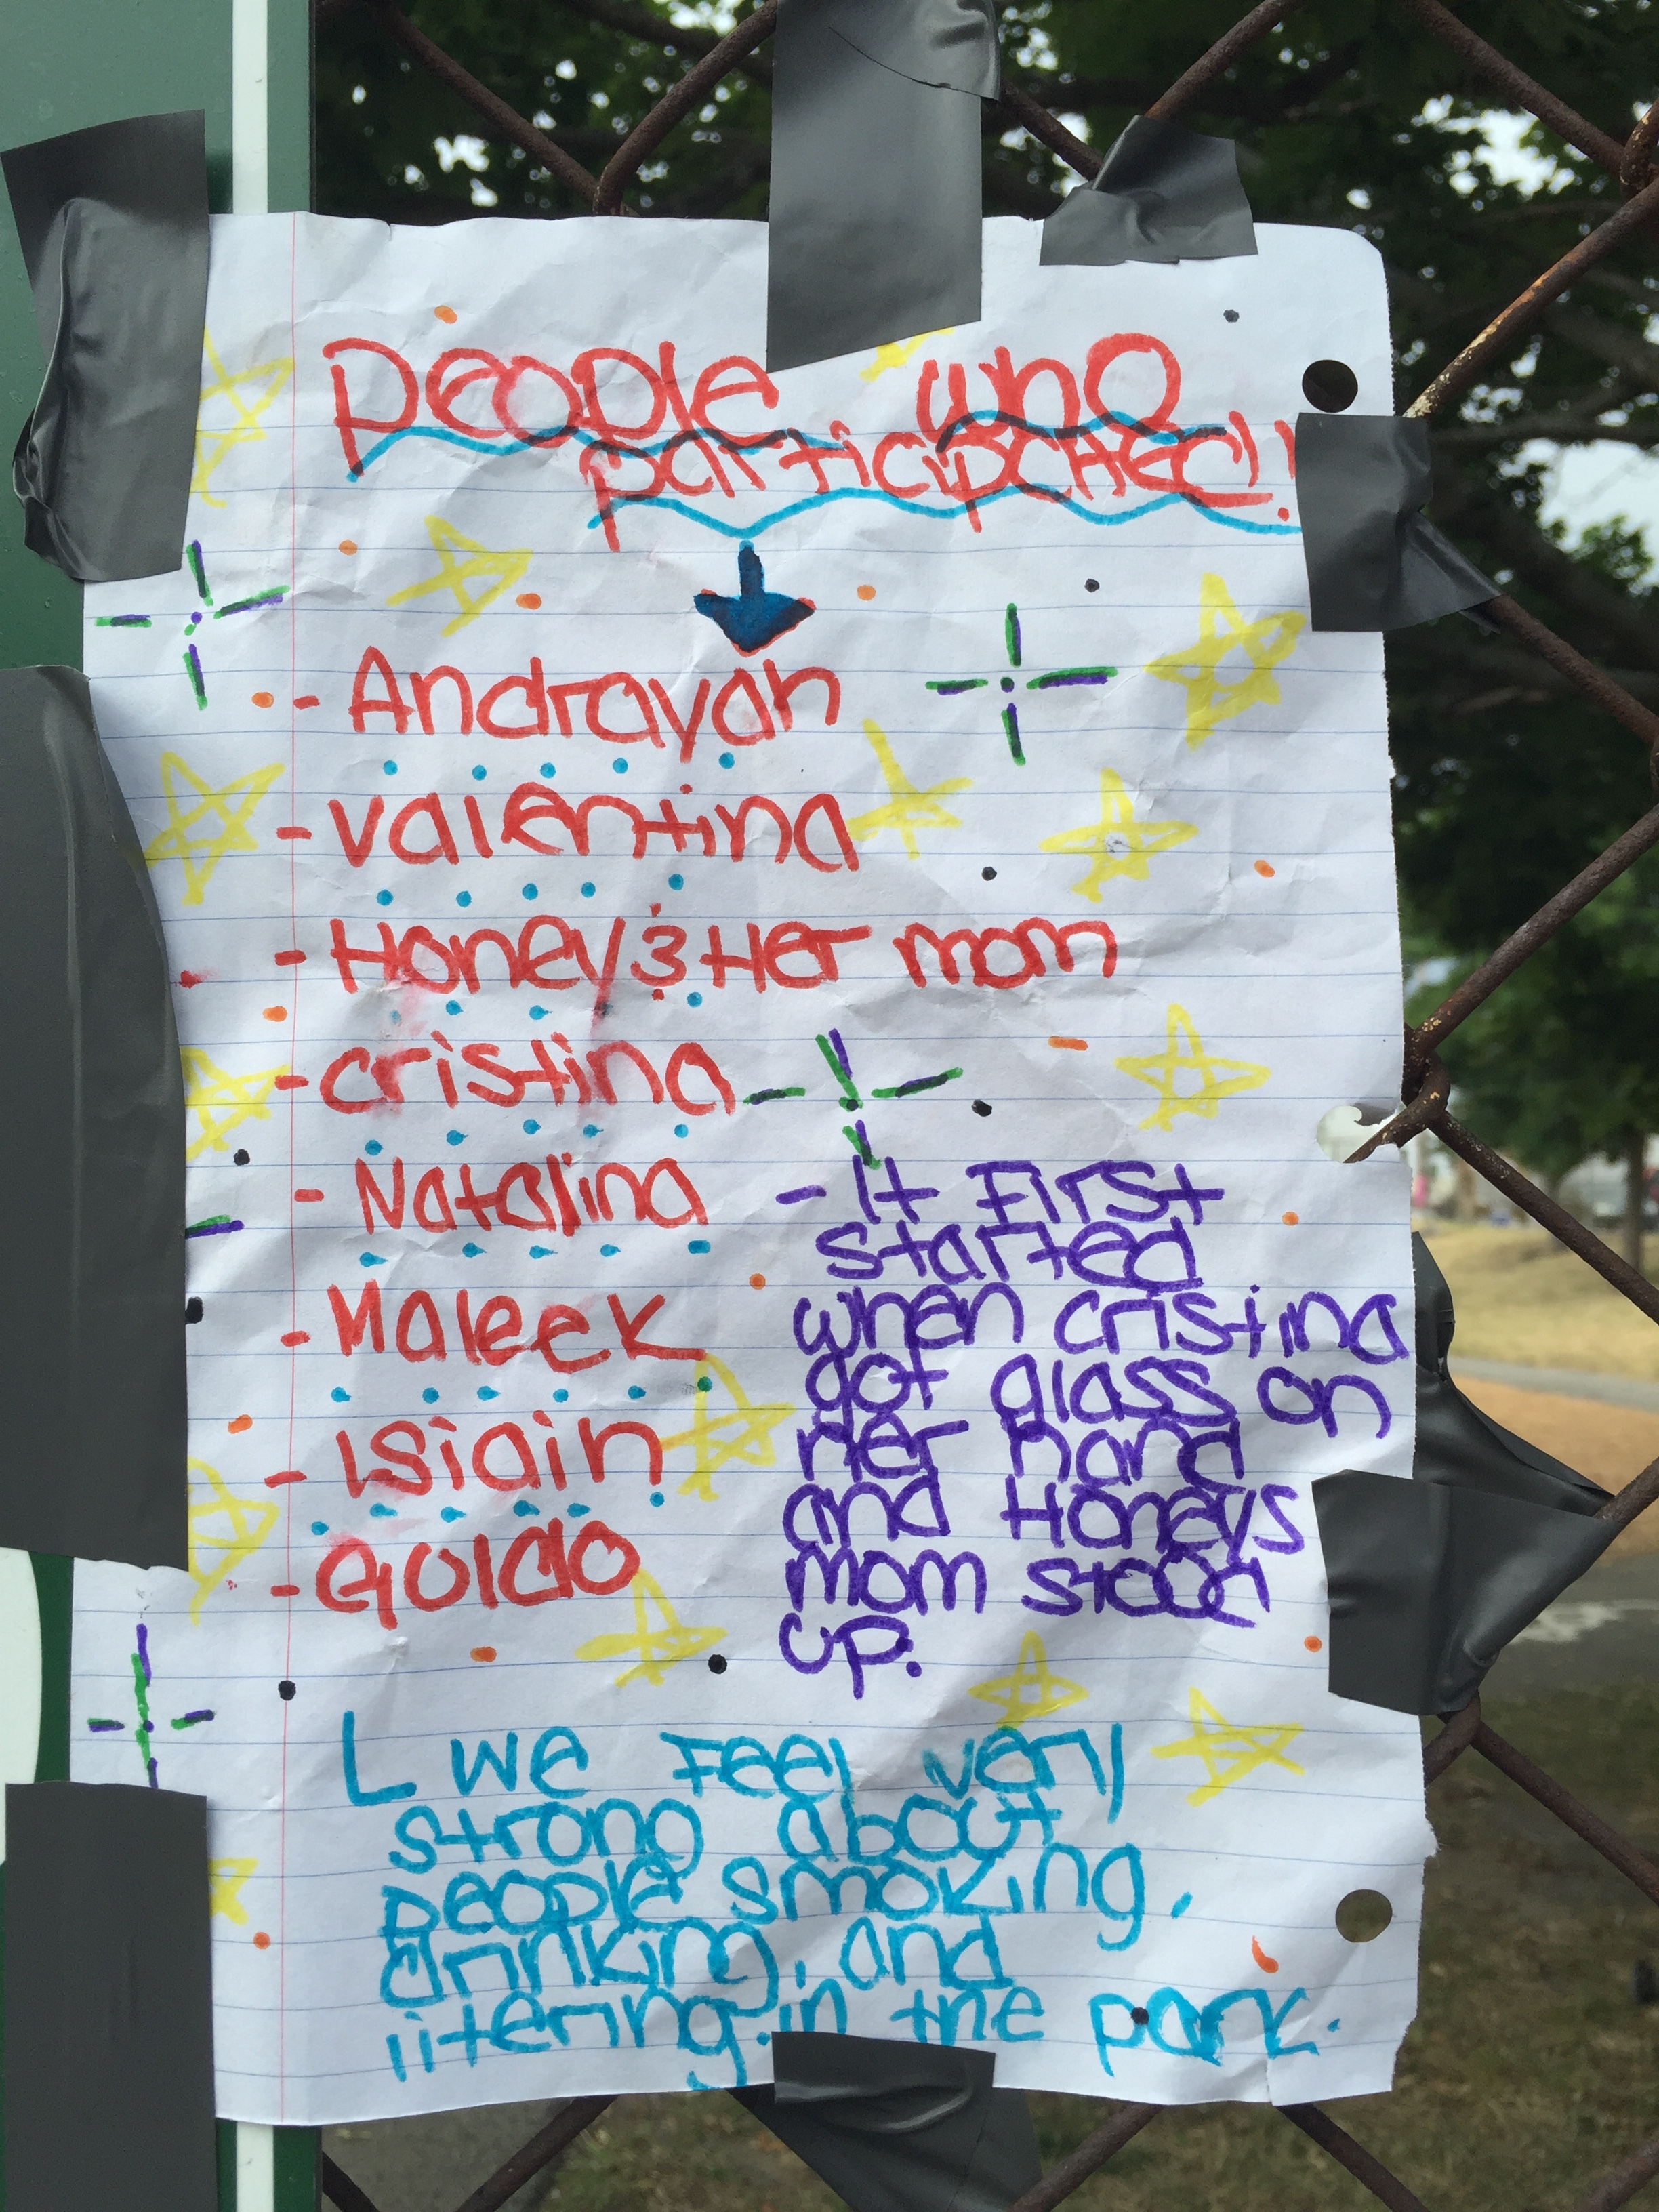 People who
participated!!
- Andrayah
- Valentina
- Honey & Her mom
- cristina
- Natalina
- Maleek
- Isiain
- Guido
- It First
started
when cristina
got glass on
Her hand
and Honeys
mom stood
up.
we Feel very
strong about
people smoking,
drinking, and
litering in the park.